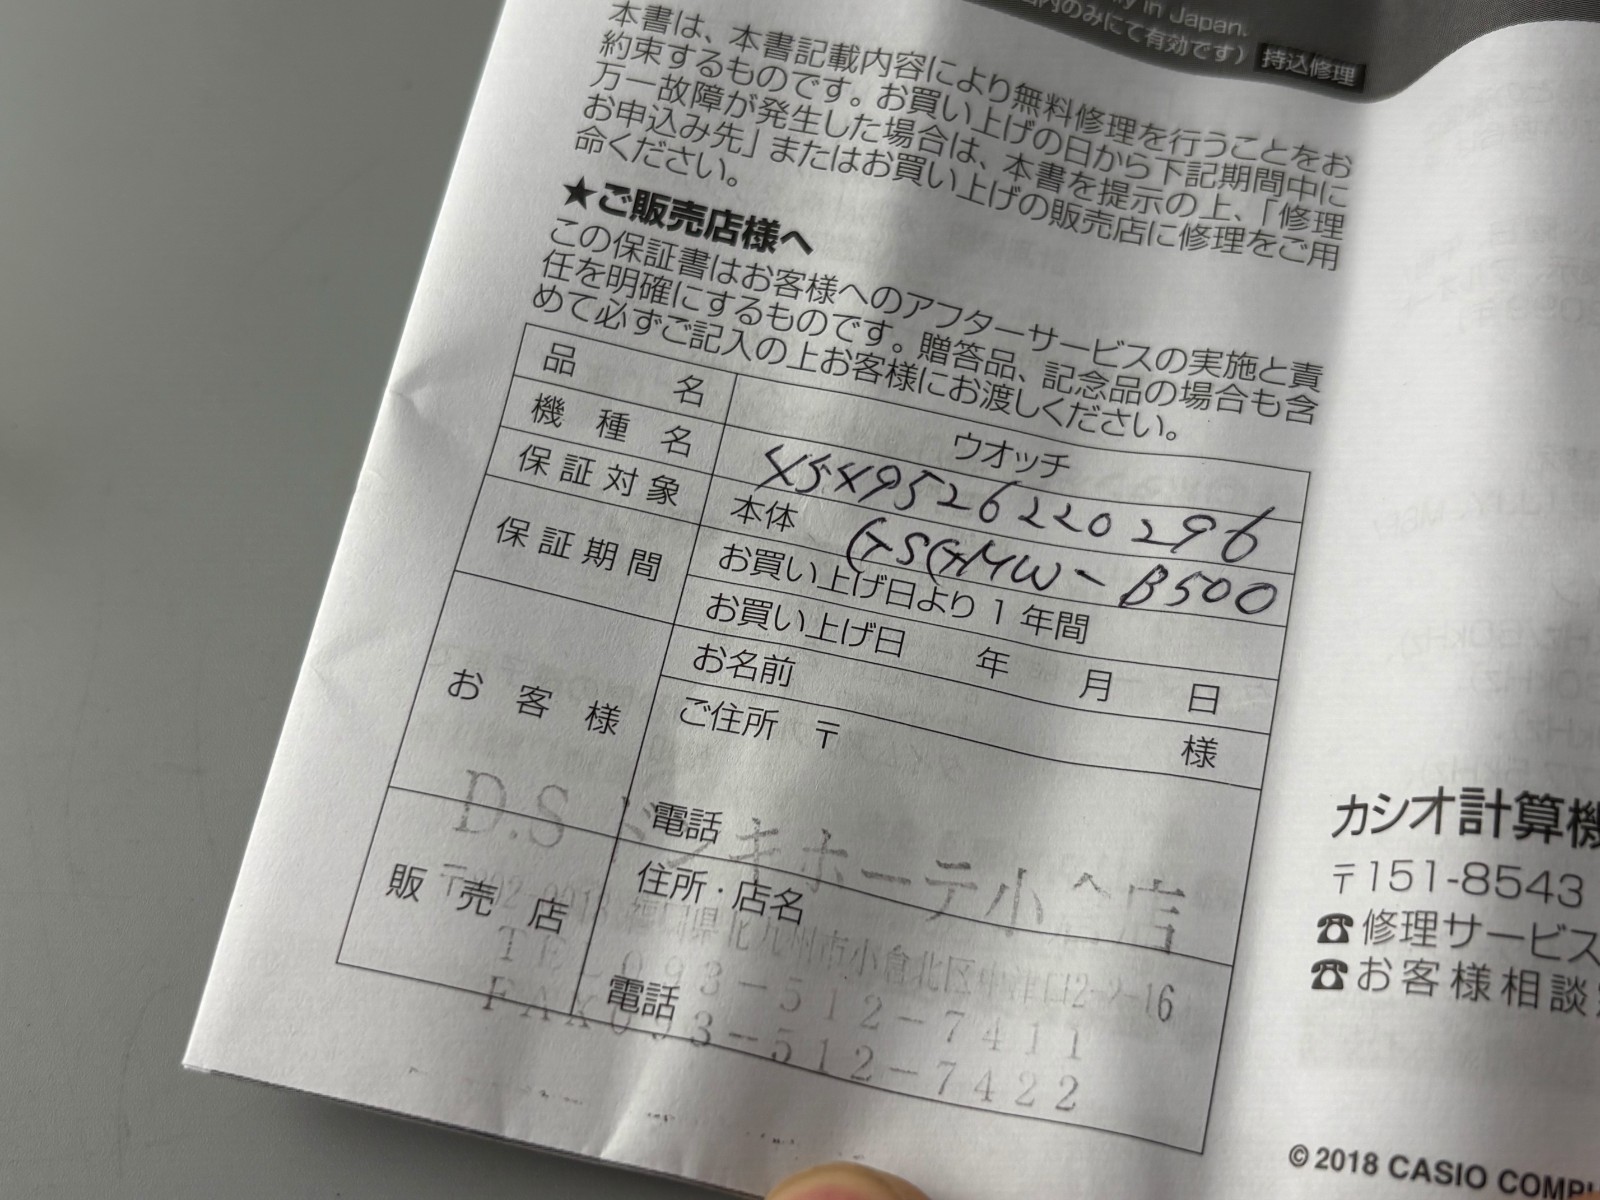 in Japan.
内のみにて有効です） 持込修理
本書は、本書記載内容により無料修理を行うことをお
約束するものです。お買い上げの日から下記期間中に
万一故障が発生した場合は、本書を提示の上、「修理
お申込み先」またはお買い上げの販売店に修理をご用
命ください。
★ご販売店様へ
この保証書はお客様へのアフターサービスの実施と責
任を明確にするものです。贈答品、記念品の場合も含
めて必ずご記入の上お客様にお渡しください。
品名 ウオッチ
機種名
保証対象 本体 GSGMW-B500
保証期間 お買い上げ日より1年間
お買い上げ日 年 月 日
お客様 お名前 様
ご住所 〒
電話
D.S ドンキホーテ小倉店
販売店 住所・店名
福岡県北九州市小倉北区中津口2-2-16
TEL 093-512-7411
電話
FAX093-512-7422
カシオ計算機
〒151-8543
☎修理サービス
☎お客様相談
©2018 CASIO